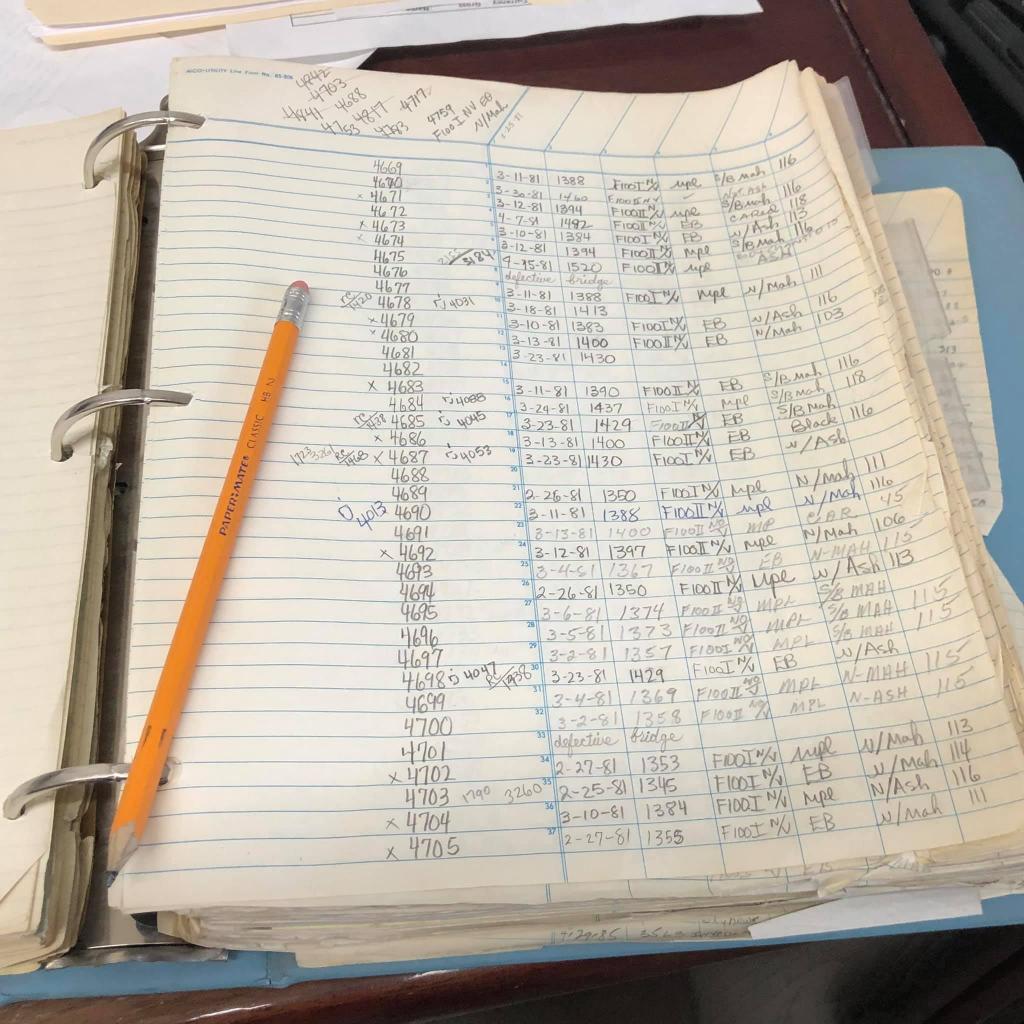 Currency Gross Name
AICO-UTILITY Line Form No. 85-806
4242
4703
4688
4441 4817 4717
4753 4793
4759
F100 I NV EB
N/Mah
4669 3-11-81 1388 F100 I N/V mpl S/B mah 116
4670 3-30-81 1460 F100 II NV
x 4671 3-12-81 1394 F100 II N/V mpl S/B mah 116
4672 4-7-81 1492 F100 II N/V EB 118
x 4673 3-10-81 1384 F100 I N/V EB N/Ash 113
x 4674 3-12-81 1394 F100 II N/V mpl S/B mah 116
4675 3184 4-15-81 1520 F100 I N/V mpl ASH
4676 defective bridge
4677 3-11-81 1388 F100 I N/V mpl N/Mah 111
RC 1420 4678 4031 3-18-81 1413
x 4679 3-10-81 1383 F100 I N/V EB N/Ash 116
x 4680 3-13-81 1400 F100 II N/V EB N/Mah 103
4681 3-23-81 1430
4682
x 4683 3-11-81 1390 F100 II N/V EB S/B mah 116
4684 4088 3-24-81 1437 F100 I N/V mpl S/B Mah 118
RC 1438 4685 4045 3-23-81 1429 F100 II N/V EB S/B Mah
x 4686 3-13-81 1400 F100 II N/V EB Black 116
RC 1468 x 4687 4053 3-23-81 1430 F100 I N/V EB N/Ash
4688
4689 2-26-81 1350 F100 I N/V mpl N/Mah 111
4013 4690 3-11-81 1388 F100 II N/V mpl N/Mah 116
4691 3-13-81 1400 F100 II MP CAR
x 4692 3-12-81 1397 F100 II N/V mpl N/Mah 106
4693 3-4-81 1367 F100 II EB N-MAH 115
4694 2-26-81 1350 F100 II N/V Mpl N/Ash 113
4695 3-6-81 1374 F100 II MPL S/B MAH
4696 3-5-81 1373 F100 II MPL S/B MAH 115
4697 3-2-81 1357 F100 I MPL S/B MAH 115
4698 4047 RC 1438 3-23-81 1429 F100 I N/V EB N/Ash
4699 3-4-81 1369 F100 II MPL N-MAH 115
4700 3-2-81 1358 F100 II MPL N-ASH 115
4701 defective bridge
x 4702 2-27-81 1353 F100 I N/V mpl N/Mah 113
4703 1790 3260 2-25-81 1345 F100 I N/V EB N/Mah 114
x 4704 3-10-81 1384 F100 I N/V mpl N/Ash 116
x 4705 2-27-81 1355 F100 I N/V EB N/Mah 111
PAPER:MATE® CLASSIC HB 2